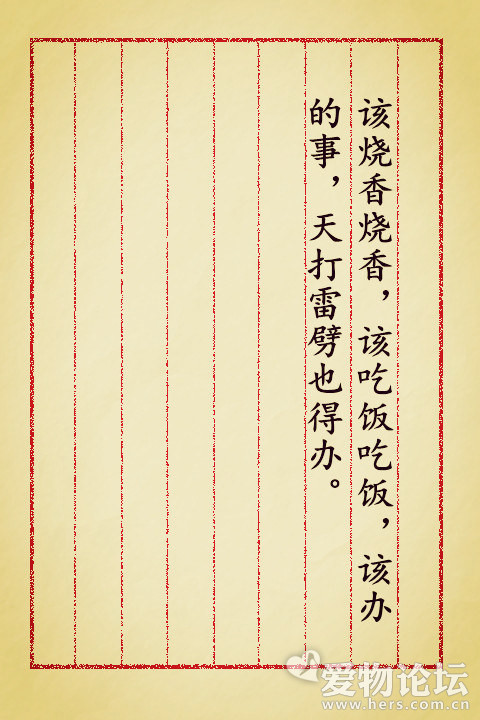 该烧香烧香，该吃饭吃饭，该办
的事，天打雷劈也得办。
爱物论坛
www.hers.com.cn